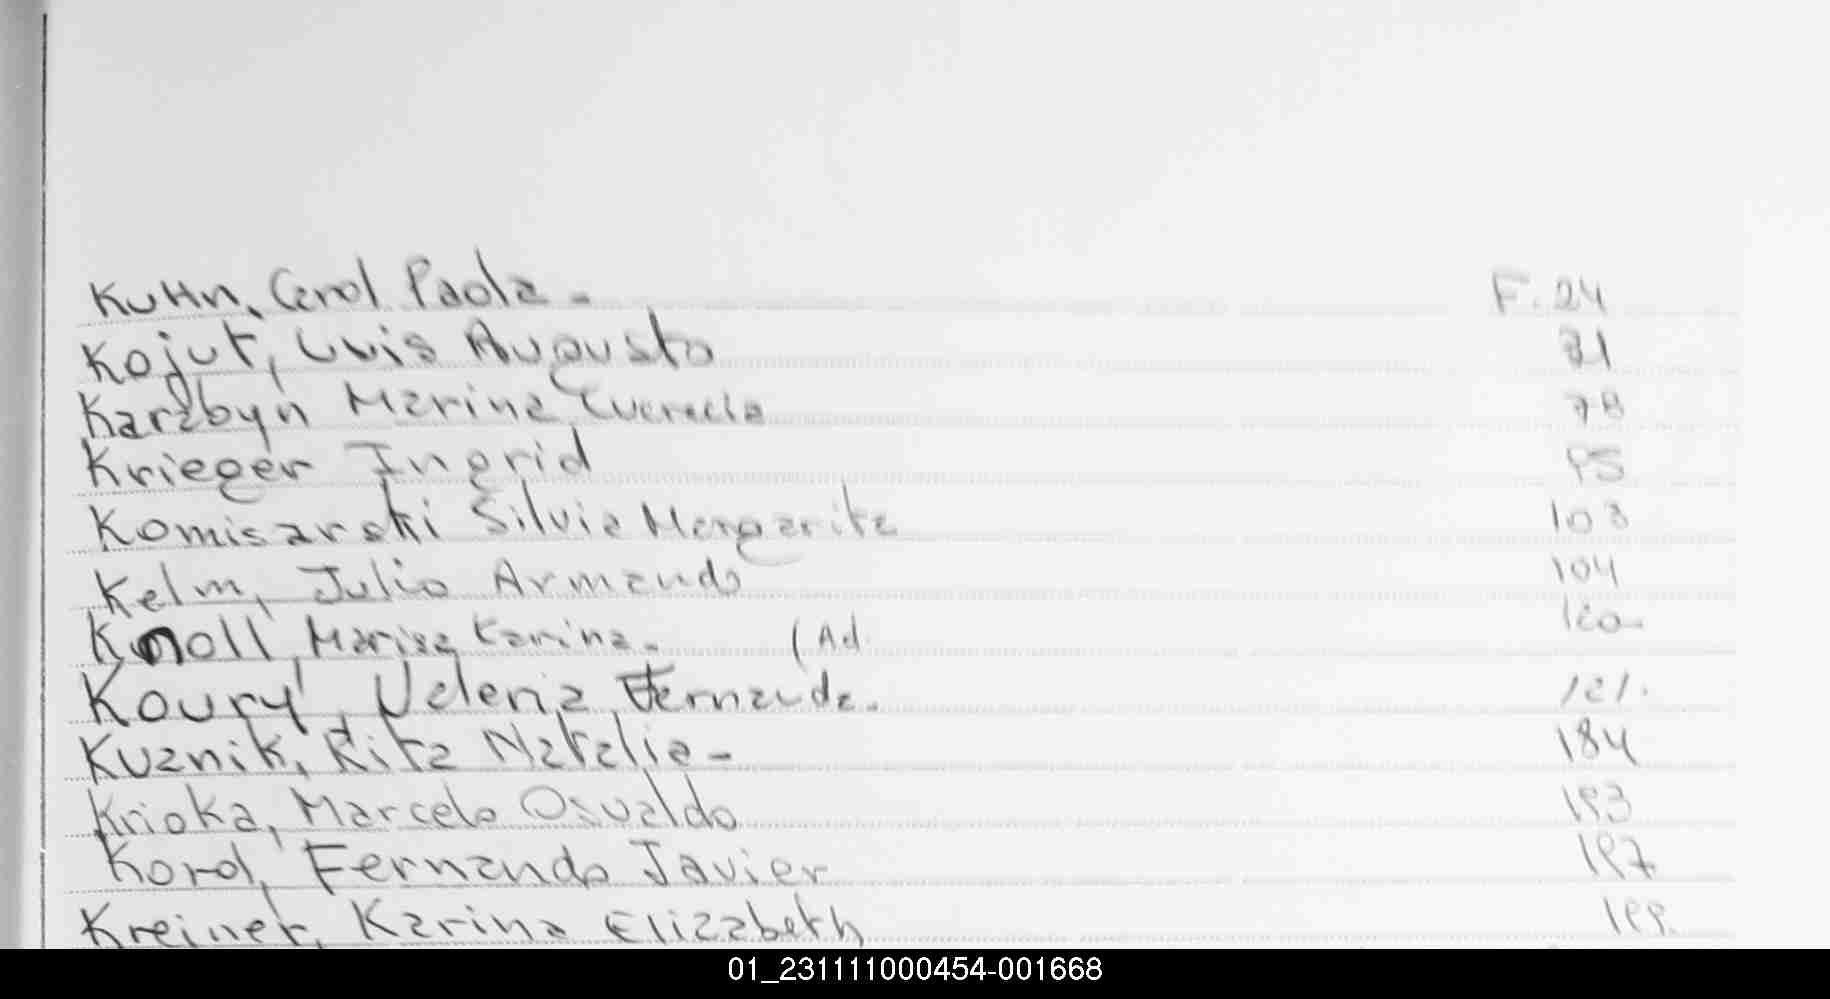 Kuhn, Carol Paola - F. 24
Kojut, Luis Augusto 71
Karabyn Marina Lucrecia 78
Krieger Ingrid 95
Komisarski Silvia Margarita 103
Kelm, Julio Armando 104
Knoll, Marisa Karina. (Ad. 120-
Koury, Valeria Fernanda. 121.
Kuznik, Rita Natalia - 184
Krioka, Marcelo Osvaldo 193
Kord, Fernando Javier 197
Kreiner, Karina Elizabeth 199.
01_231111000454-001668